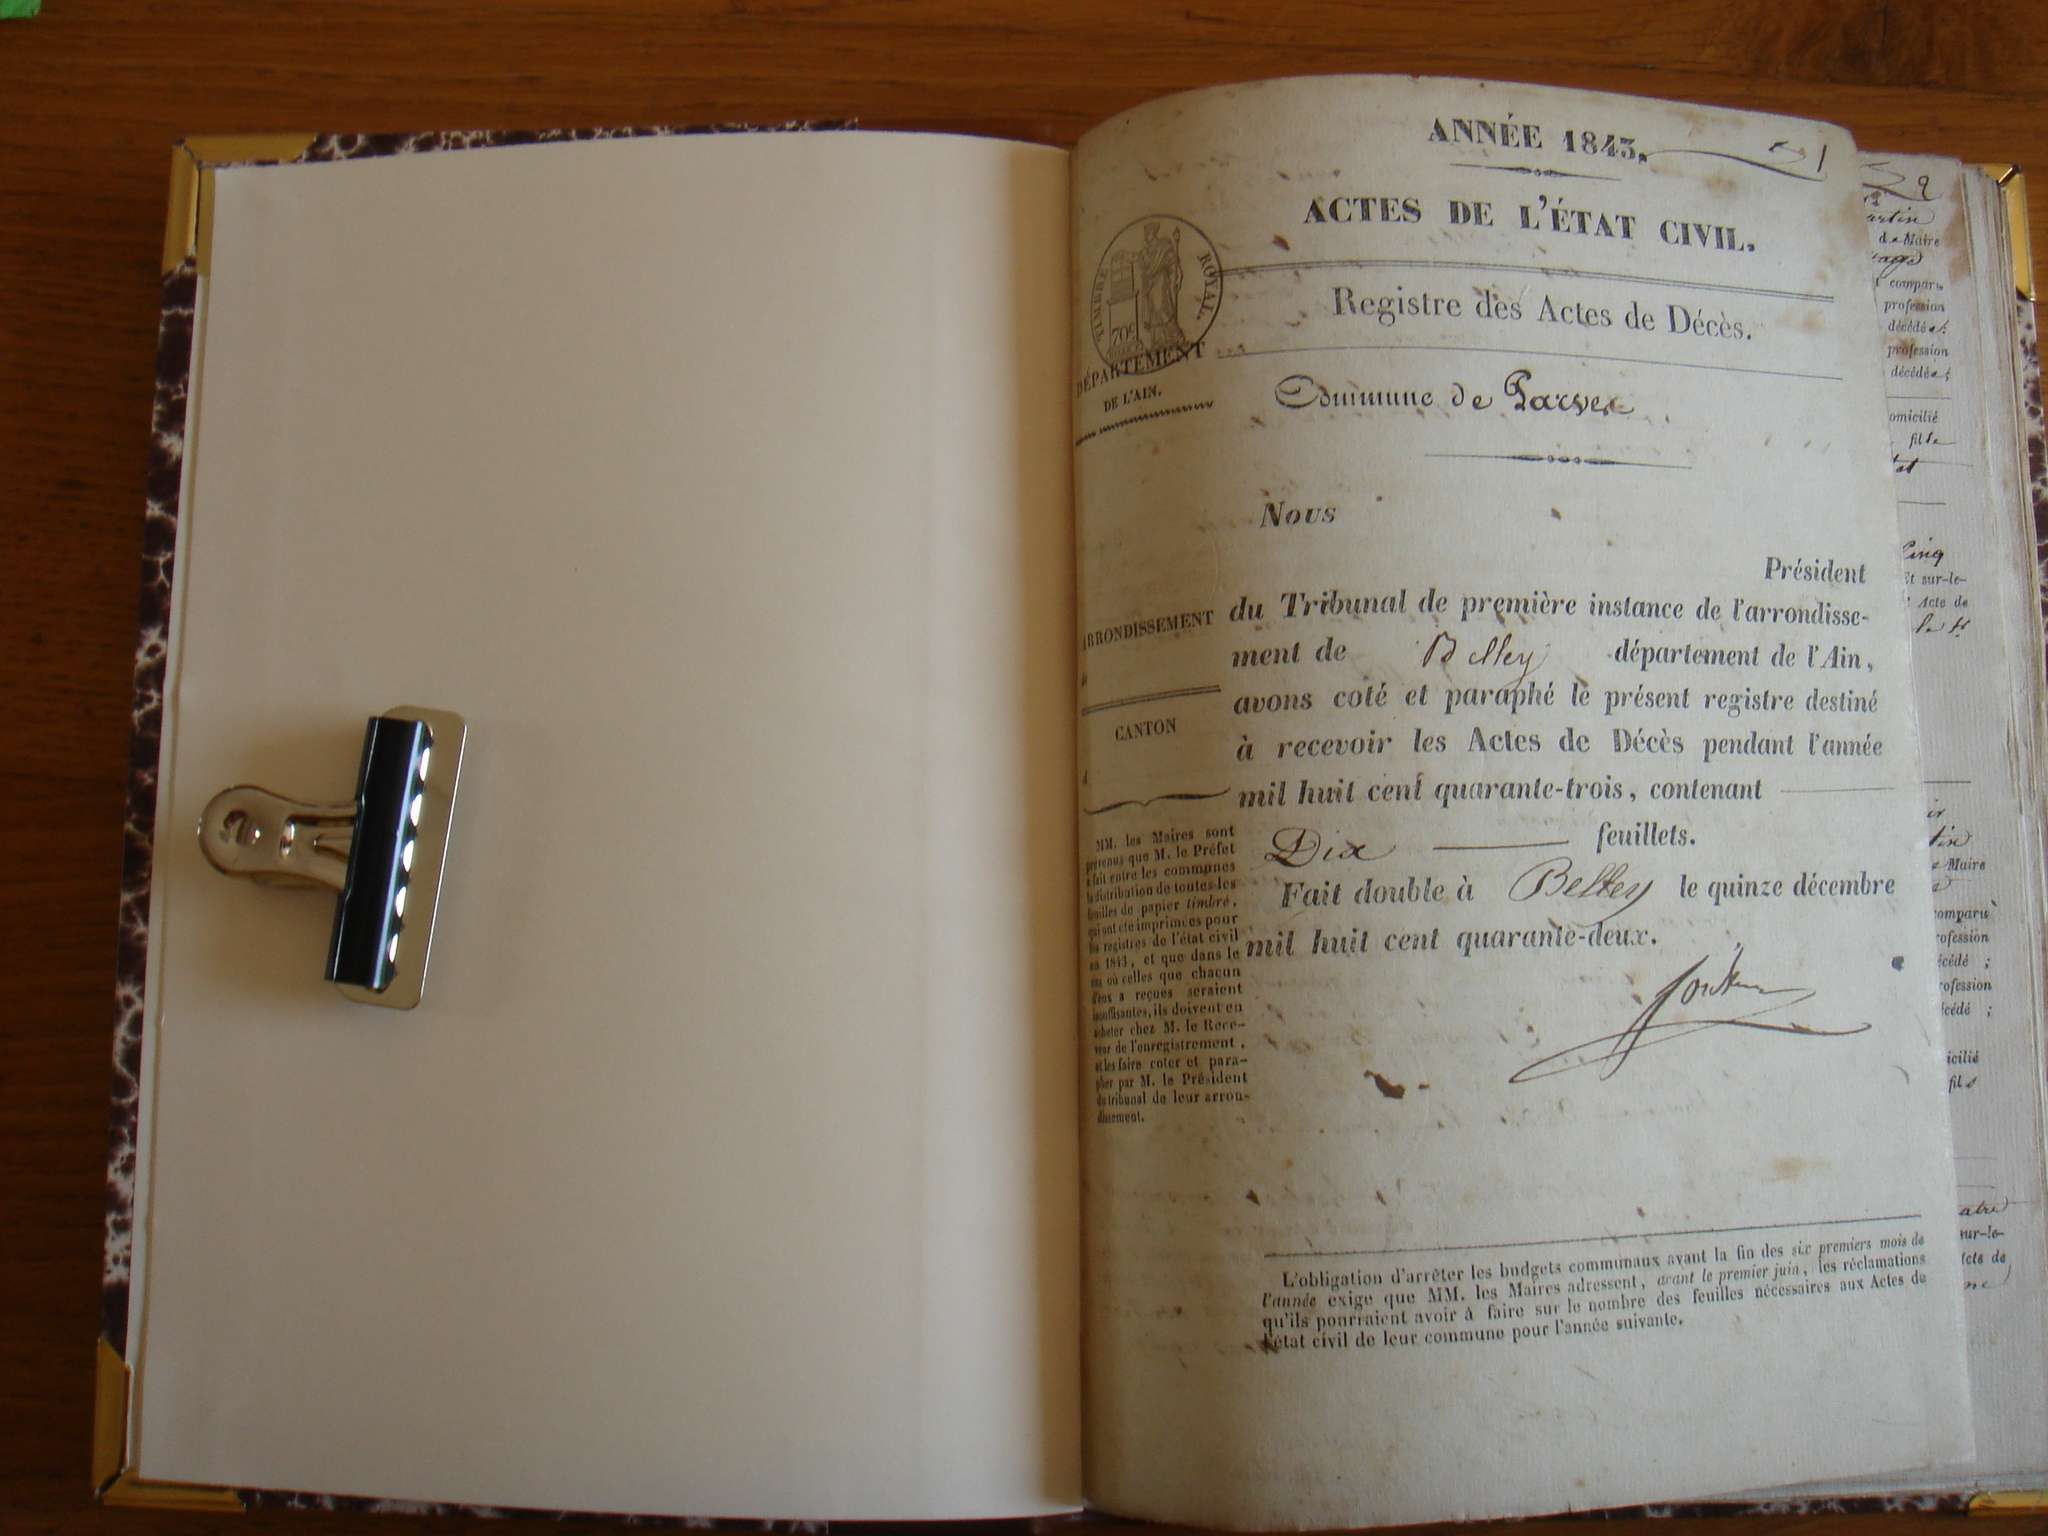 ANNÉE 1843.
1
ACTES DE L'ÉTAT CIVIL.
TIMBRE ROYAL.
70c
Registre des Actes de Décès.
DÉPARTEMENT
DE L'AIN.
Commune de Parves
Nous
Président
du Tribunal de première instance de l'arrondisse-
ment de Belley département de l'Ain,
avons coté et paraphé le présent registre destiné
à recevoir les Actes de Décès pendant l'année
mil huit cent quarante-trois, contenant
Dix feuillets.
Fait double à Belley le quinze décembre
mil huit cent quarante-deux.
ARRONDISSEMENT
de
CANTON
d
MM. les Maires sont
prévenus que M. le Préfet
a fait entre les communes
la distribution de toutes les
feuilles de papier timbré,
qui ont été imprimées pour
les registres de l'état civil
en 1843, et que dans le
cas où celles que chacun
d'eux a reçues seraient
insuffisantes, ils doivent en
acheter chez M. le Rece-
veur de l'enregistrement,
et les faire coter et para-
pher par M. le Président
du tribunal de leur arron-
dissement.
L'obligation d'arrêter les budgets communaux avant la fin des six premiers mois de
l'année exige que MM. les Maires adressent, avant le premier juin, les réclamations
qu'ils pourraient avoir à faire sur le nombre des feuilles nécessaires aux Actes de
l'état civil de leur commune pour l'année suivante.
2
de Maire
comparu
profession
décédé
profession
décédé;
omicilié
fils
cinq
Et sur-le-
Acte de
Maire
comparu
rofession
écédé ;
rofession
écédé ;
icilié
fils
sur-le-
Acte de